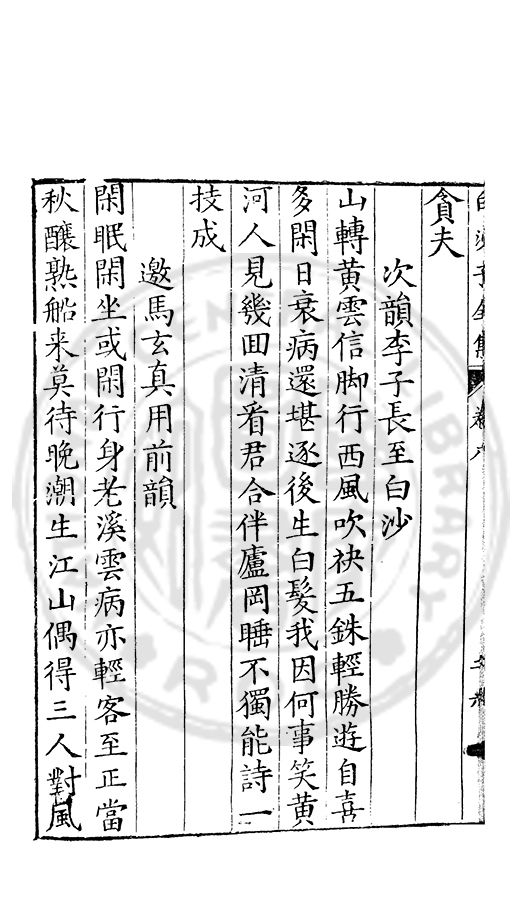 白沙子全集 卷六
貪夫
次韻李子長至白沙
山轉黃雲信脚行西風吹袂五銖輕勝遊自喜
多閑日衰病還堪逐後生白髮我因何事笑黃
河人見幾囬清看君合伴廬岡睡不獨能詩一
技成
邀馬玄真用前韻
閑眠閑坐或閑行身老溪雲病亦輕客至正當
秋釀熟船来莫待晚潮生江山偶得三人對風